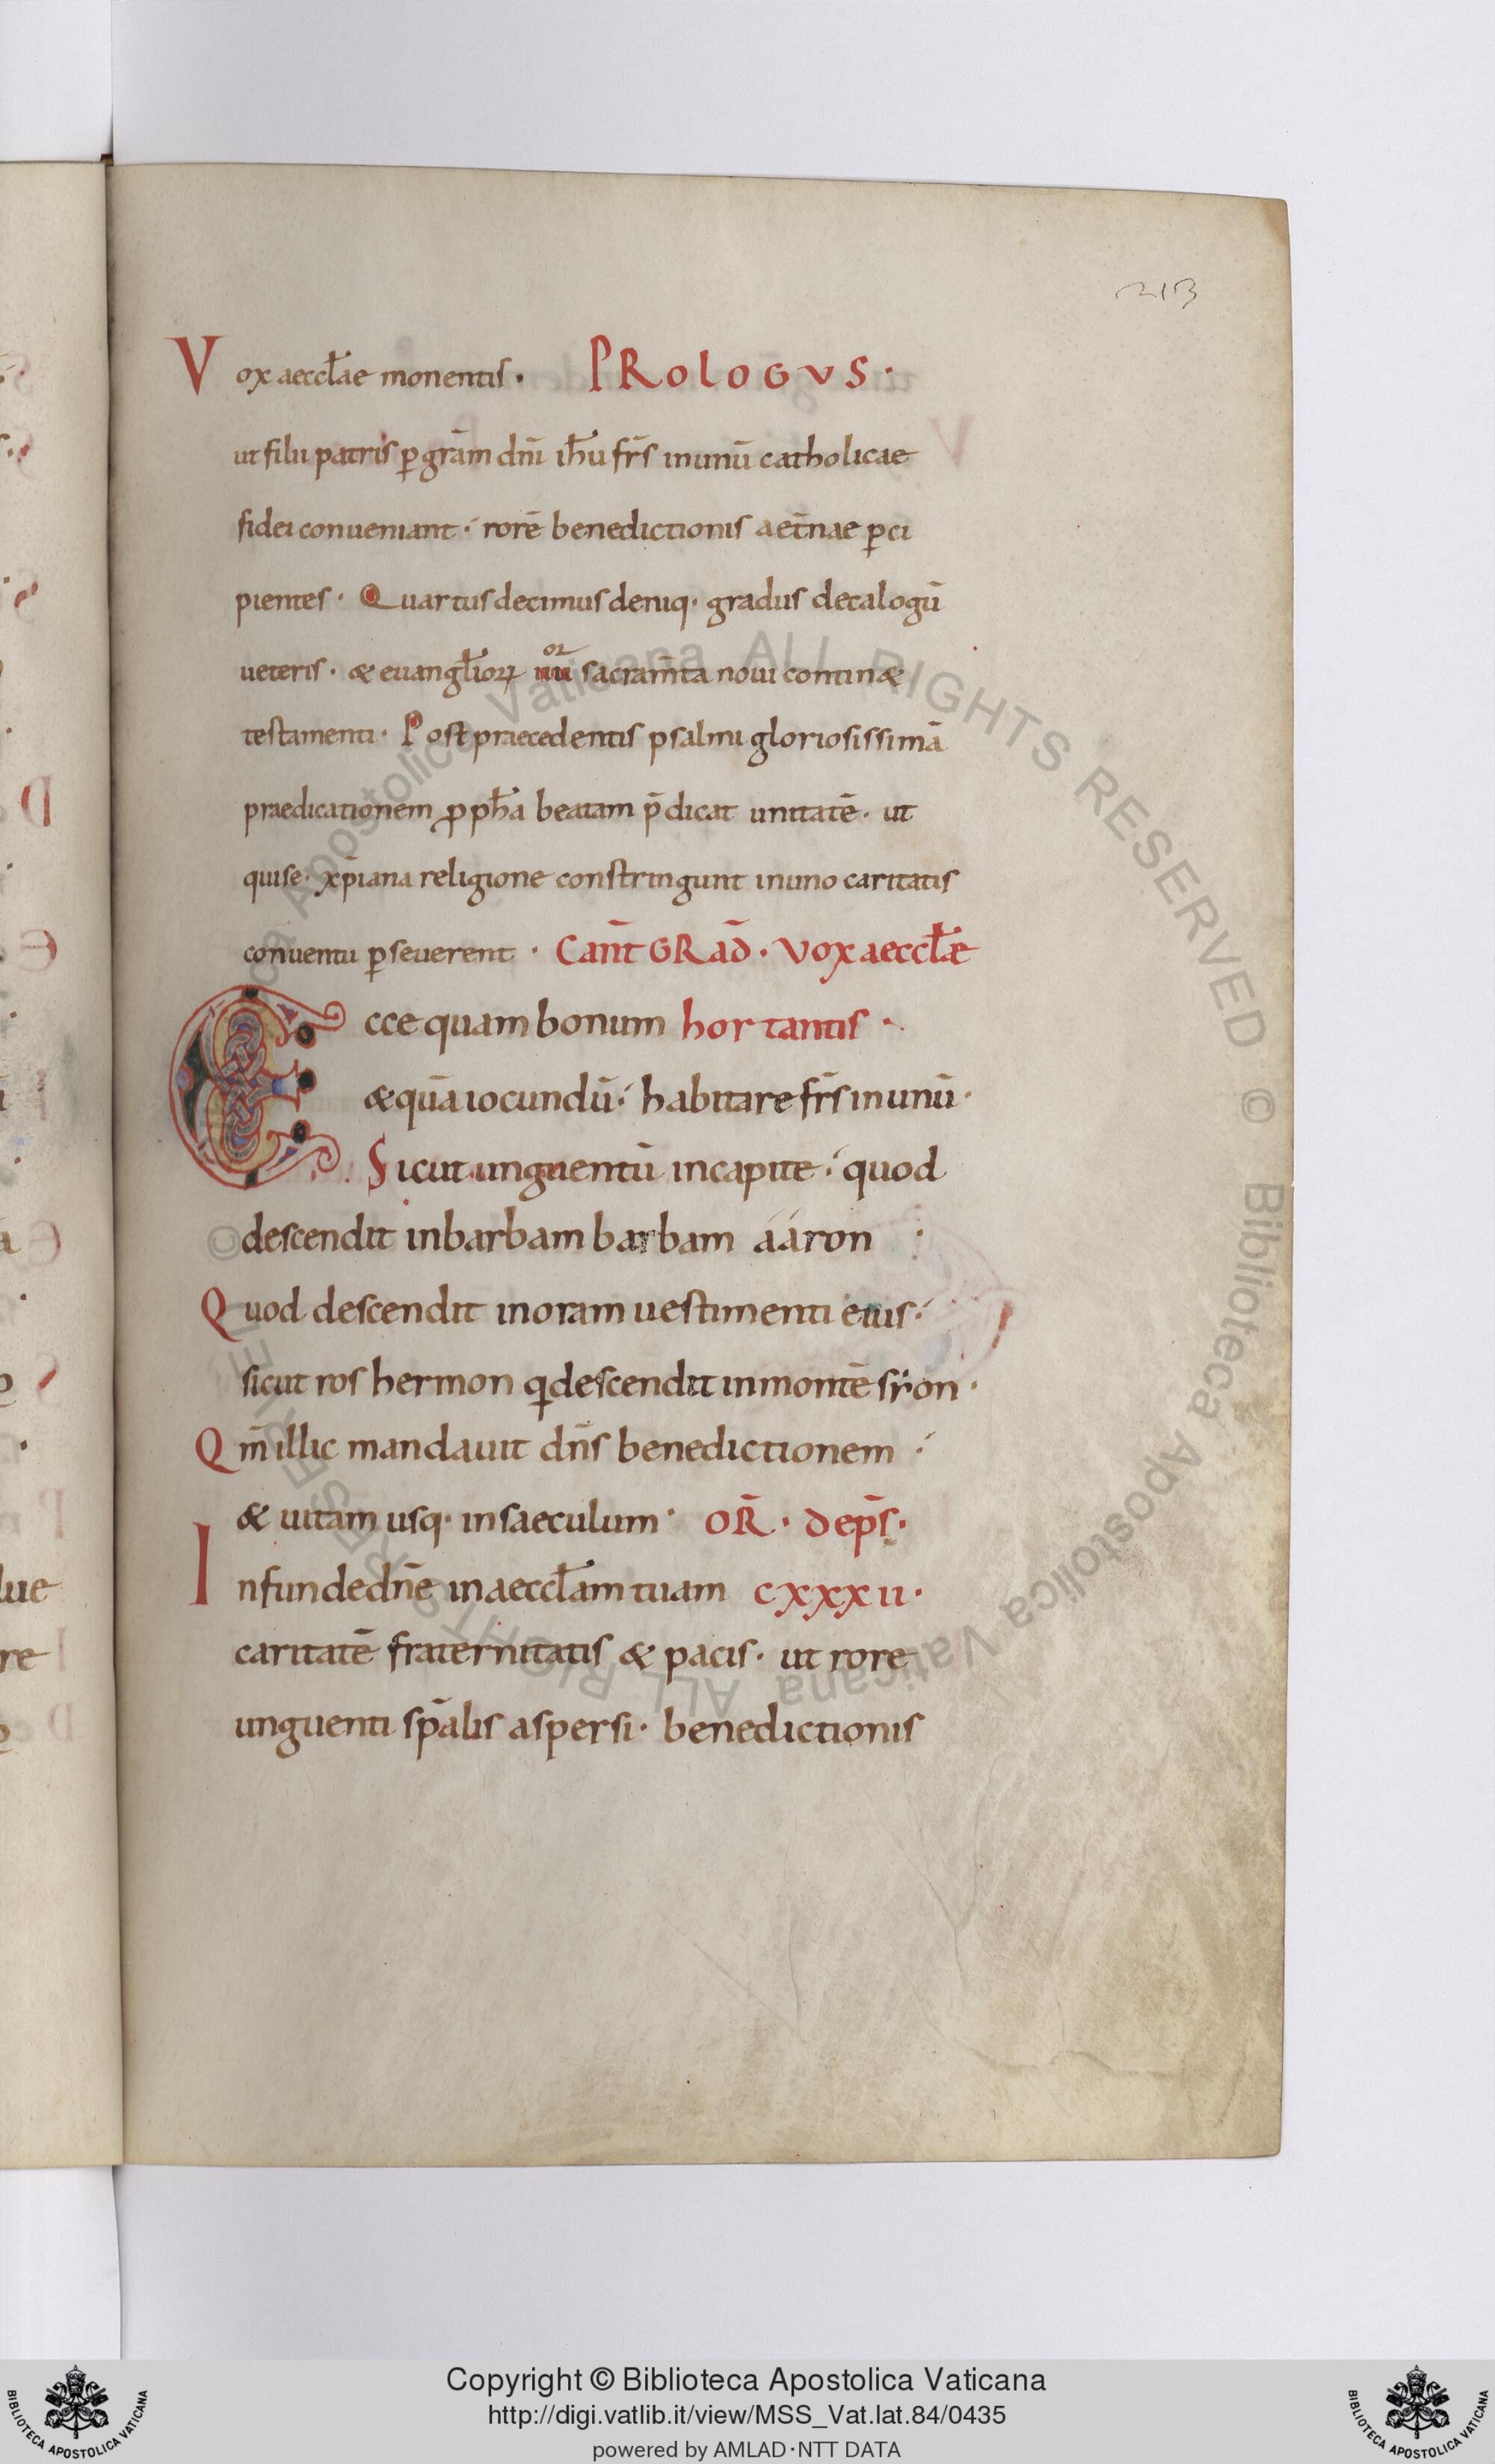 213
Vox aecclae monentis · PROLOGVS ·
ut filii patris p̱ grām dn̄i ihū fr̄s inunū catholicae
fidei conueniant · rorē benedictionis aet̄nae p̱ci
pientes · Quartus decimus deniq· gradus decalogū
ueteris · & euanglioꝝ iiii̅ᵒʳ sacram̄ta noui contin&
testamenti · Post praecedentis psalmi gloriosissimā
praedicationem ꝓpha beatam p̄dicat unitatē · ut
quise · xp̄iana religione constringunt inuno caritatis
conuentu p̱seuerent · Cant̄ GRAD̄ · Vox aecclae
Ecce quam bonum hortantis ·
& quā iocundū · habitare fr̄s inunū ·
Sicut unguentū incapite · quod
descendit inbarbam barbam ááron
Quod descendit inoram uestimenti eius ·
sicut ros hermon q̱ descendit inmontē sy̓on ·
Qm̄ illic mandauit dn̄s benedictionem
& uitam usq· insaeculum · OR̄ · de ps̄ ·
Infunde dn̄e inaecclam tuam cxxxii ·
caritatē fraternitatis & pacis · ut rore
unguenti sp̄alis aspersi · benedictionis
© Biblioteca Apostolica Vaticana ALL RIGHTS RESERVED © Biblioteca Apostolica Vaticana ALL RIGHTS RESERVED
Copyright © Biblioteca Apostolica Vaticana
http://digi.vatlib.it/view/MSS_Vat.lat.84/0435
powered by AMLAD·NTT DATA
BIBLIOTECA APOSTOLICA VATICANA
BIBLIOTECA APOSTOLICA VATICANA